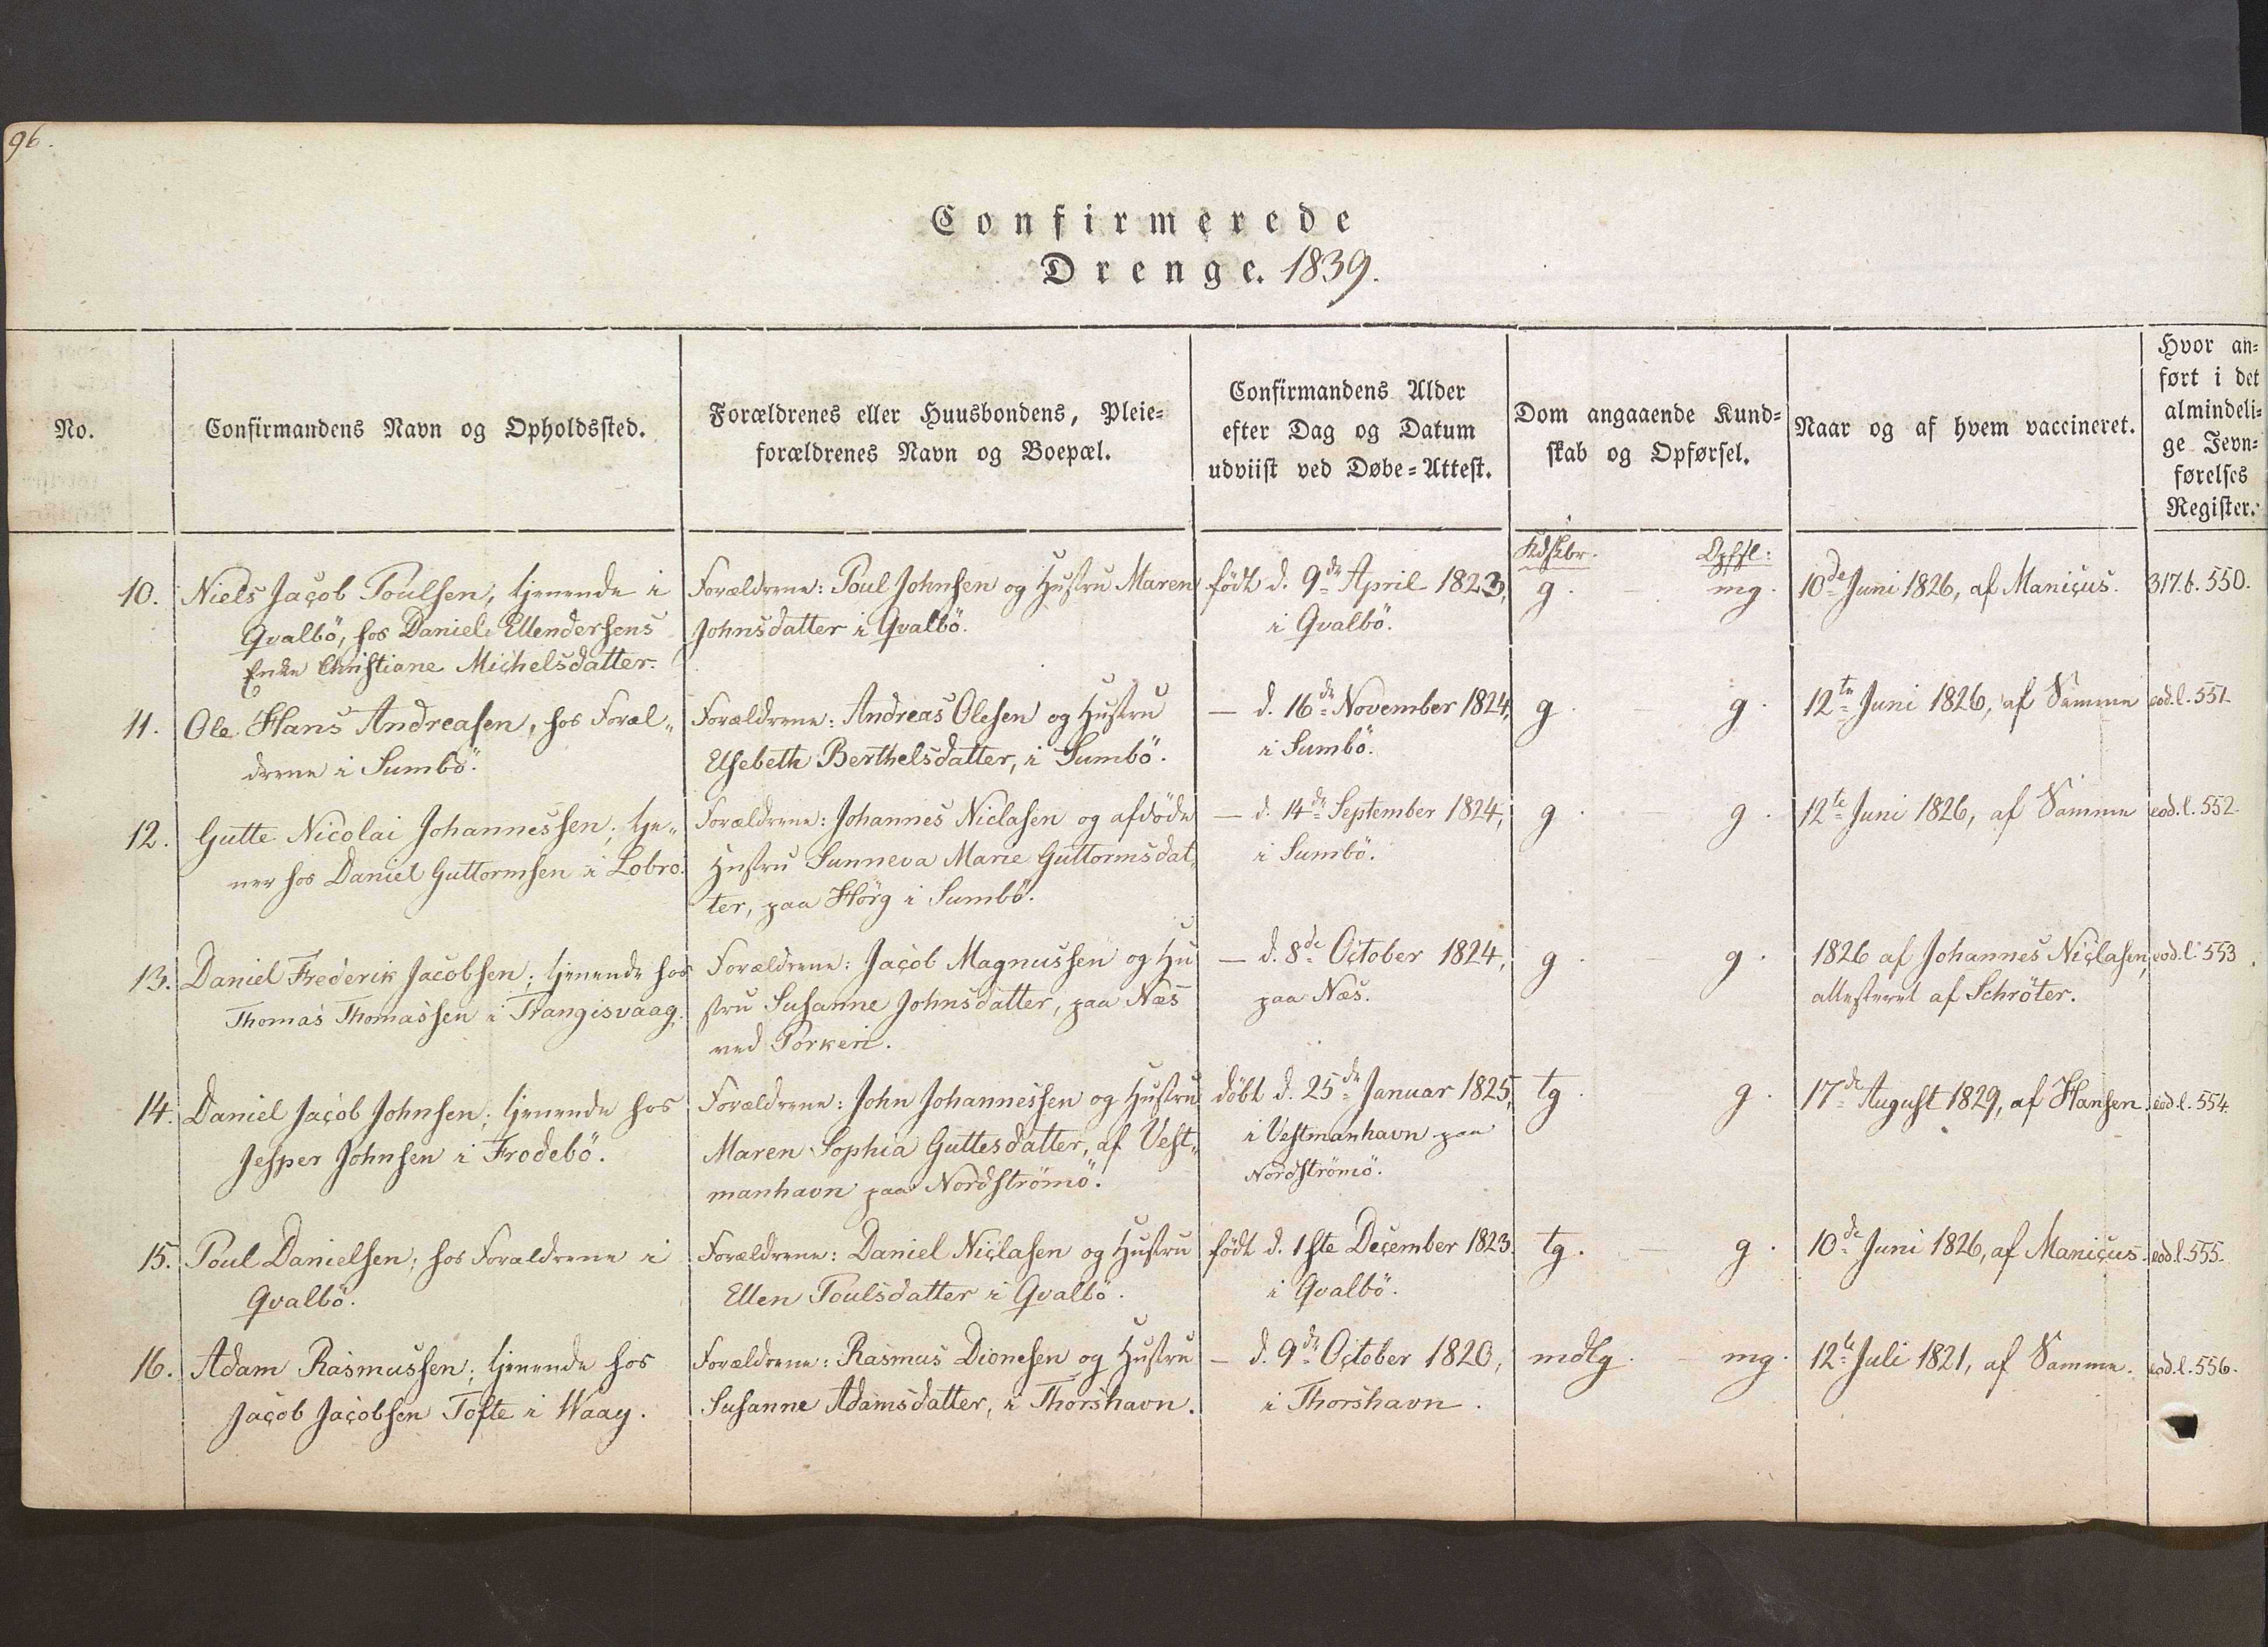 96.
Confirmerede
Drenge. 1839.
No.
Confirmandens Navn og Opholdssted.
Forældrenes eller Huusbondens, Pleie-
forældrenes Navn og Boepæl.
Confirmandens Alder
efter Dag og Datum
udviist ved Døbe-Attest.
Dom angaaende Kund-
skab og Opførsel.
Naar og af hvem vaccineret.
Hvor an-
ført i det
almindeli-
ge Jevn-
førelses
Register.
Kdskbr. Opfsl:
10.
Niels Jacob Poulsen, tjenende i
Qvalbö, hos Daniel Ellendersens
Enke Christiane Michelsdatter.
Forældrene: Poul Johnsen og Hustru Maren
Johnsdatter i Qvalbö.
født d. 9de April 1823,
i Qvalbö.
g. - mg.
10de Juni 1826, af Manicus.
317.b.550.
11.
Ole Hans Andreasen, hos Foræl-
drene i Sumbö.
Forældrene: Andreas Olesen og Hustru
Elsebeth Berthelsdatter, i Sumbö.
— d. 16de November 1824,
i Sumbö.
g. - g.
12te Juni 1826, af Samme
eod.l.551.
12.
Gutte Nicolai Johannessen; tje-
ner hos Daniel Guttormsen i Lobro.
Forældrene: Johannes Niclasen og afdöde
Hustru Sunneva Marie Guttormsdat-
ter, paa Hörg i Sumbö.
— d. 14de September 1824,
i Sumbö.
g. - g.
12te Juni 1826, af Samme
eod.l.552.
13.
Daniel Frederik Jacobsen; tjenende hos
Thomas Thomassen i Trangisvaag.
Forældrene: Jacob Magnussen og Hu
stru Susanne Johnsdatter, paa Næs
ved Porkeri.
— d. 8de October 1824,
paa Næs.
g. - g.
1826 af Johannes Niclasen,
attesteret af Schröter.
eod.l.553.
14.
Daniel Jacob Johnsen; tjenende hos
Jesper Johnsen i Frodebö.
Forældrene: John Johannessen og Hustru
Maren Sophia Guttesdatter, af Vest-
manhavn paa Nordströmö.
döbt d. 25de Januar 1825,
i Vestmanhavn paa
Nordströmö.
tg. g.
17de August 1829, af Hansen.
eod.l.554.
15.
Poul Danielsen; hos Forældrene i
Qvalbö.
Forældrene: Daniel Niclasen og Hustru
Ellen Poulsdatter i Qvalbö.
født d. 1ste December 1823.
i Qvalbö.
tg. - g.
10de Juni 1826, af Manicus.
eod.l.555.
16.
Adam Rasmussen; tjenende hos
Jacob Jacobsen Tofte i Waag.
Forældrene: Rasmus Dionesen og Hustru
Susanne Adamsdatter, i Thorshavn.
— d. 9de October 1820,
i Thorshavn.
mdlg. - mg.
12te Juli 1821, af Samme.
eod.l.556.